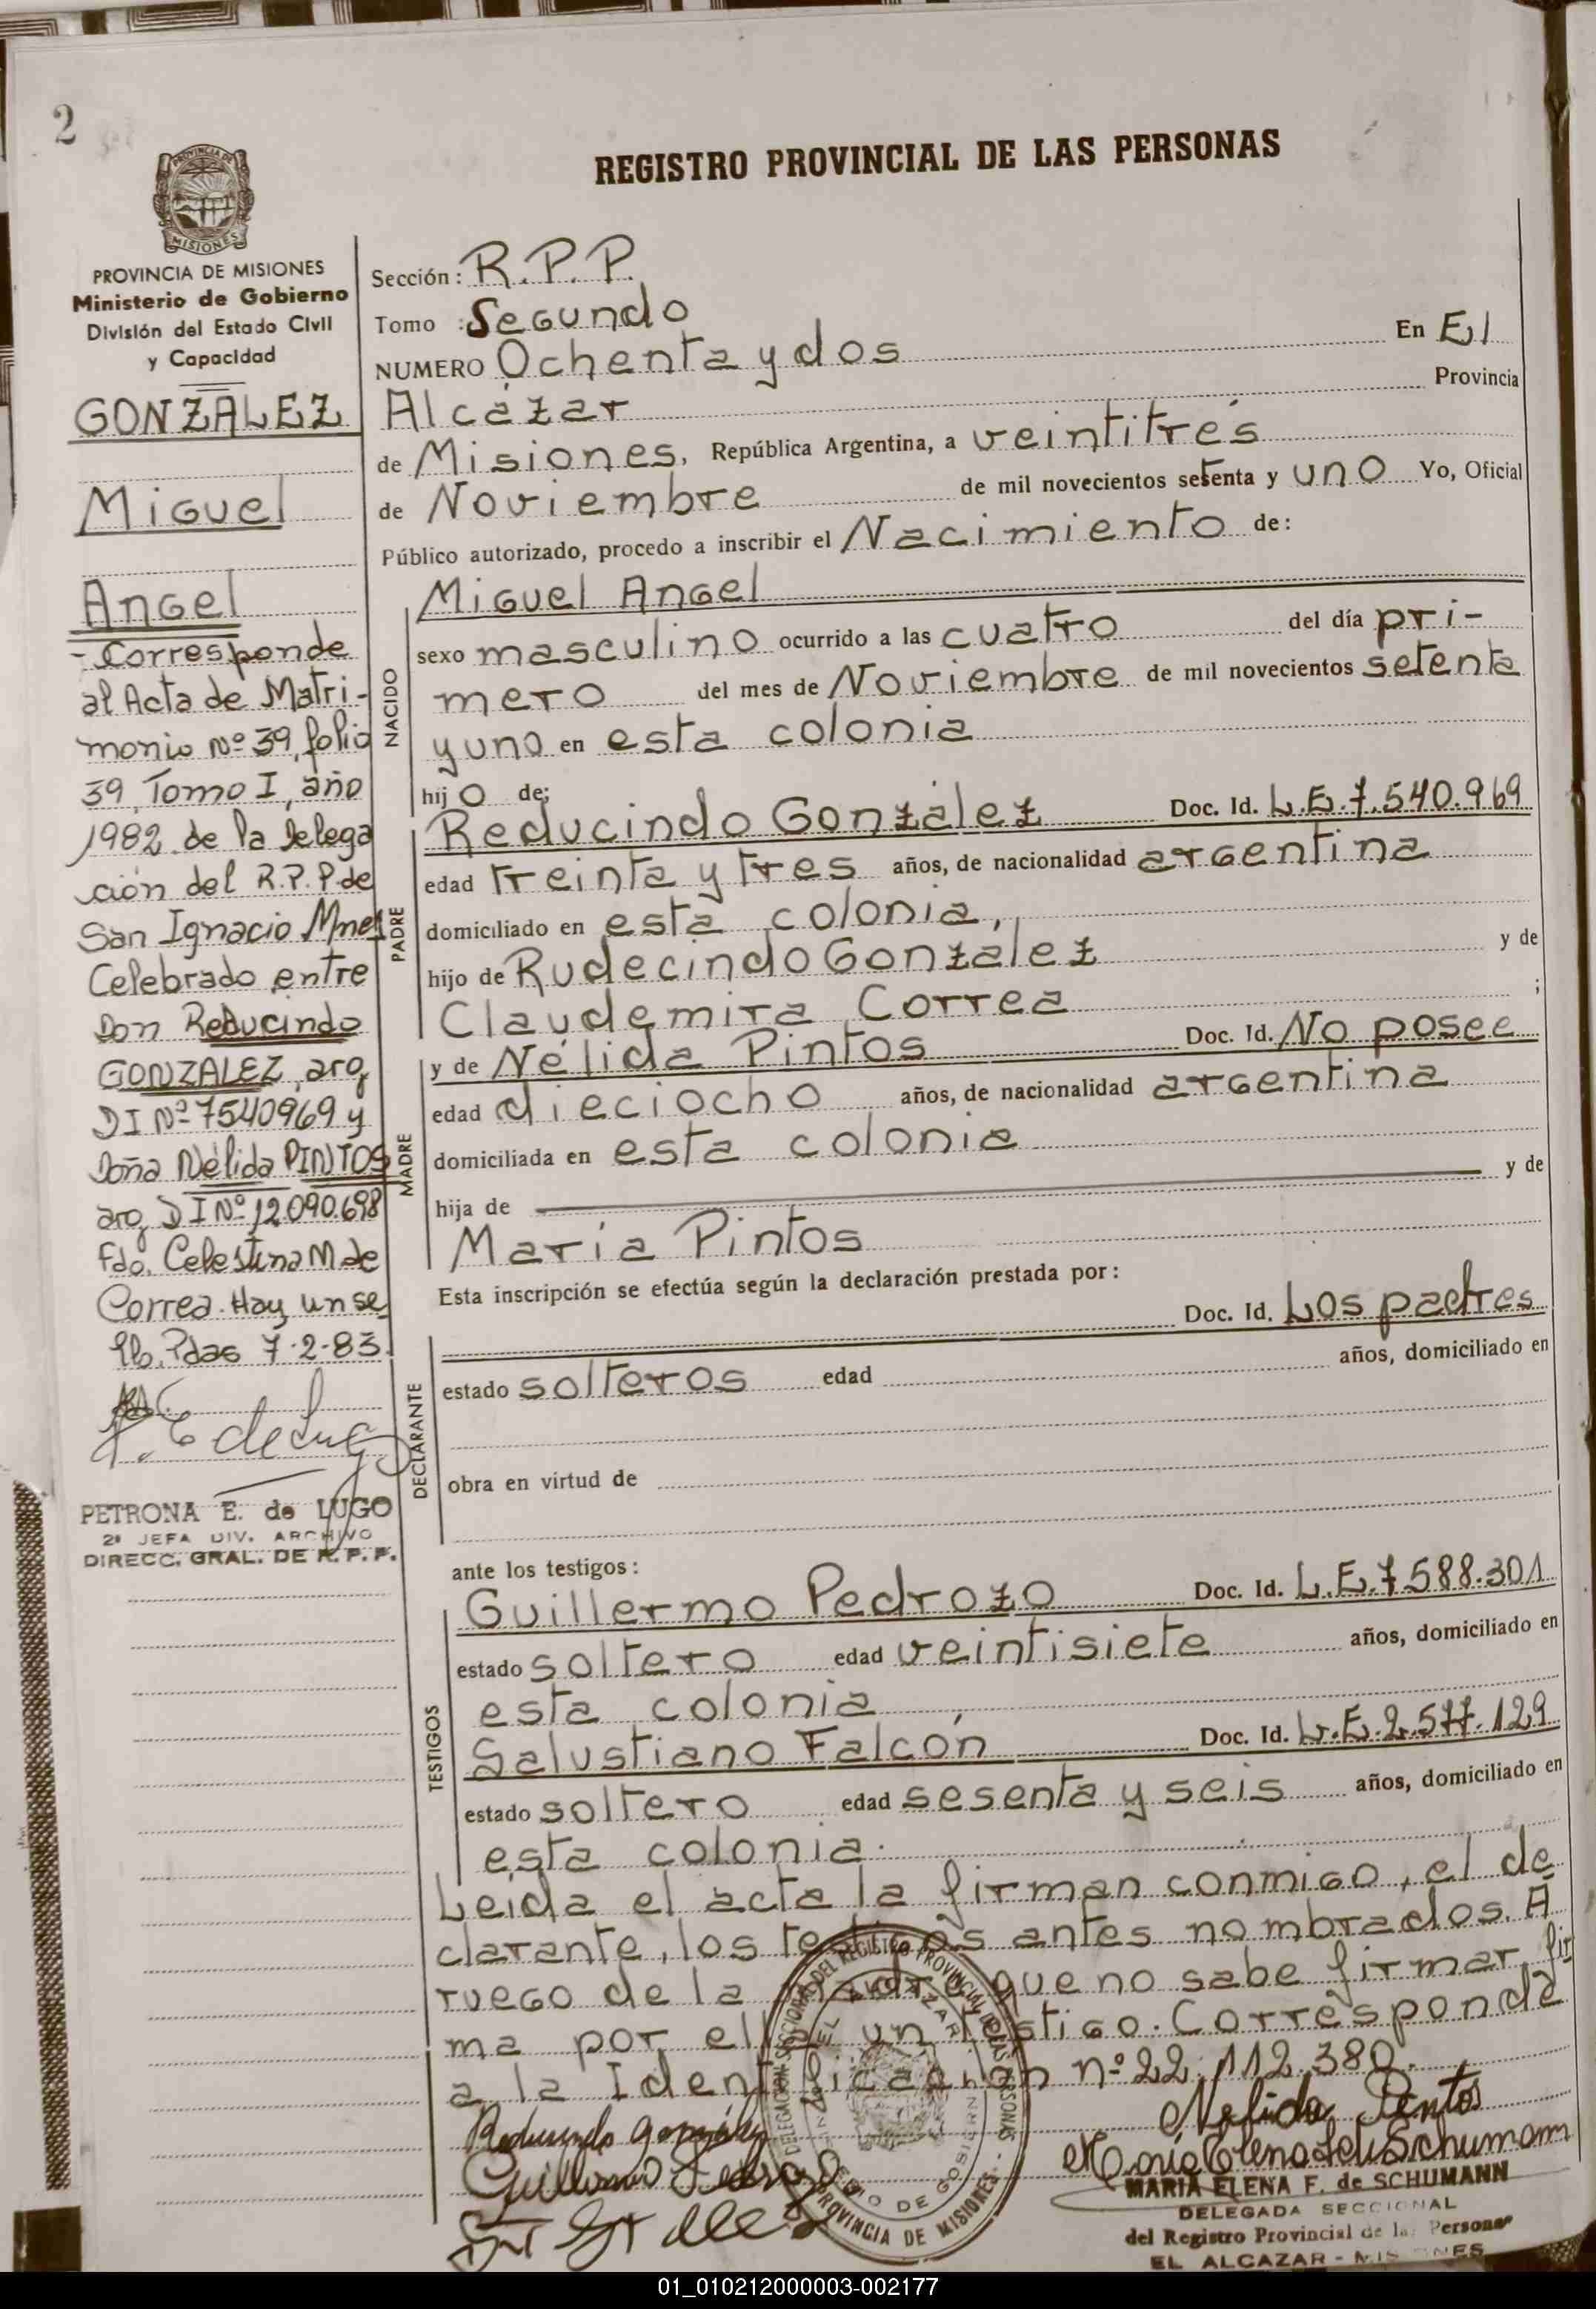 2
REGISTRO PROVINCIAL DE LAS PERSONAS
PROVINCIA DE MISIONES
Ministerio de Gobierno
División del Estado Civil
y Capacidad
GONZALEZ
Miguel
Angel
- Corresponde
al Acta de Matri-
monio Nº 39, folio
39, Tomo I, año
1982 de la Delega
ción del R.P.P. de
San Ignacio Mnes
Celebrado entre
Don Reducindo
GONZALEZ, arg
DI Nº 7540969 y
Doña Nélida PINTOS
arg DI Nº 12.090.698
Fdo. Celestina M de
Correa. Hay un se
llo. Pdas 7-2-83.
PETRONA E. de LUGO
2ª JEFA DIV. ARCHIVO
DIRECC. GRAL. DE R. P. P.
Sección: R.P.P.
Tomo : Segundo
NUMERO Ochenta y dos En El
Alcázar Provincia
de Misiones, República Argentina, a veintitrés
de Noviembre de mil novecientos setenta y uno Yo, Oficial
Público autorizado, procedo a inscribir el Nacimiento de:
Miguel Angel
NACIDO
sexo masculino ocurrido a las cuatro del día pri-
mero del mes de Noviembre de mil novecientos setenta
y uno en esta colonia
hijo de:
Reducindo González Doc. Id. L.E.7.540.969
PADRE
edad treinta y tres años, de nacionalidad argentina
domiciliado en esta colonia,
hijo de Rudecindo Gonzalez y de
Claudemira Correa ;
y de Nélida Pintos Doc. Id. No posee
MADRE
edad dieciocho años, de nacionalidad argentina
domiciliada en esta colonia
hija de y de
María Pintos
Esta inscripción se efectúa según la declaración prestada por:
Doc. Id. Los padres
DECLARANTE
estado solteros edad años, domiciliado en
obra en virtud de
ante los testigos:
Guillermo Pedrozo Doc. Id. L.E.7.588.301
TESTIGOS
estado soltero edad veintisiete años, domiciliado en
esta colonia
Salustiano Falcón Doc. Id. L.E.2.577.129
estado soltero edad sesenta y seis años, domiciliado en
esta colonia.
Leída el acta la firman conmigo, el de
clarante, los testigos antes nombrados. A
ruego de la madre que no sabe firmar, fir
ma por ella un testigo. Corresponde
a la Identificación nº 22.112.380.
Nelida Pintos
MARIA ELENA F. de SCHUMANN
DELEGADA SECCIONAL
del Registro Provincial de las Personas
EL ALCAZAR - MISIONES
DELEGACION SECCIONAL DEL REGISTRO PROVINCIAL DE LAS PERSONAS
EL ALCAZAR
PROVINCIA DE MISIONES
01_010212000003-002177